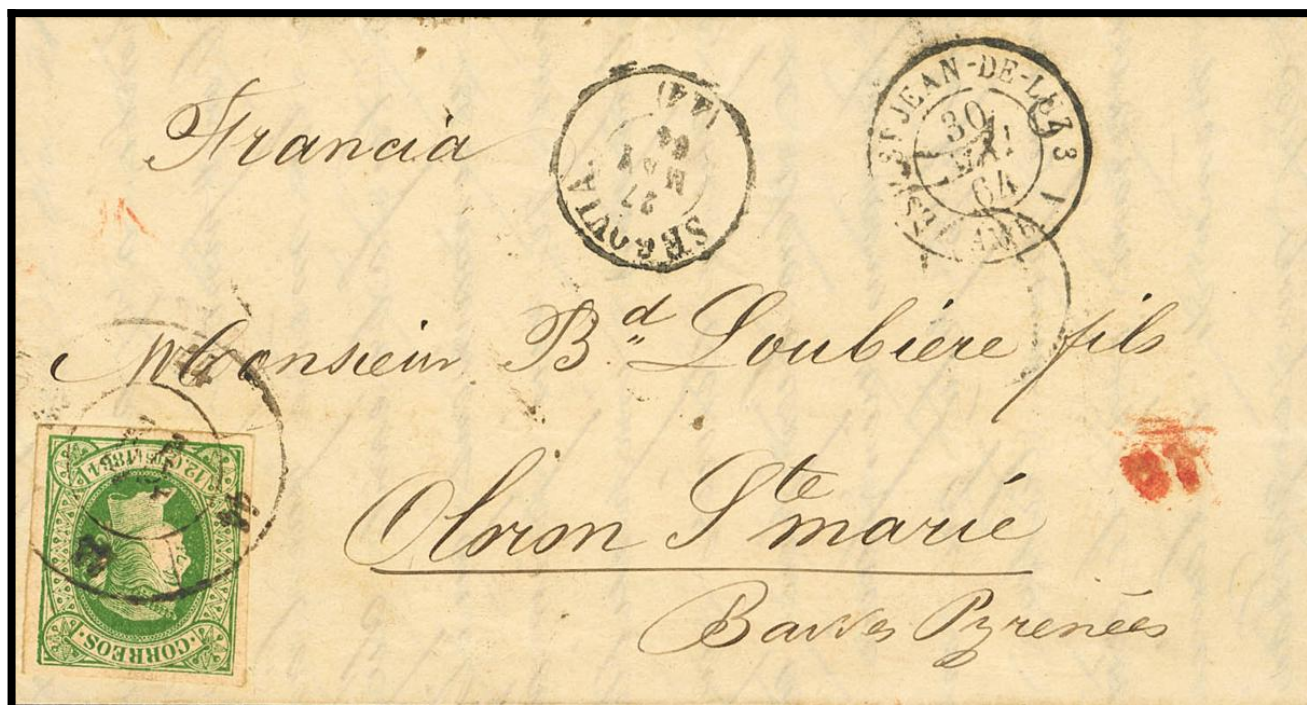 Francia
SEGOVIA
27
MAY
64
(44)
ST JEAN-DE-LUZ 3
30
MAI
64
Monsieur Bd Loubière fils
Oloron Ste marie
Basses Pyrenées
12 CUOS. 1864
CORREOS